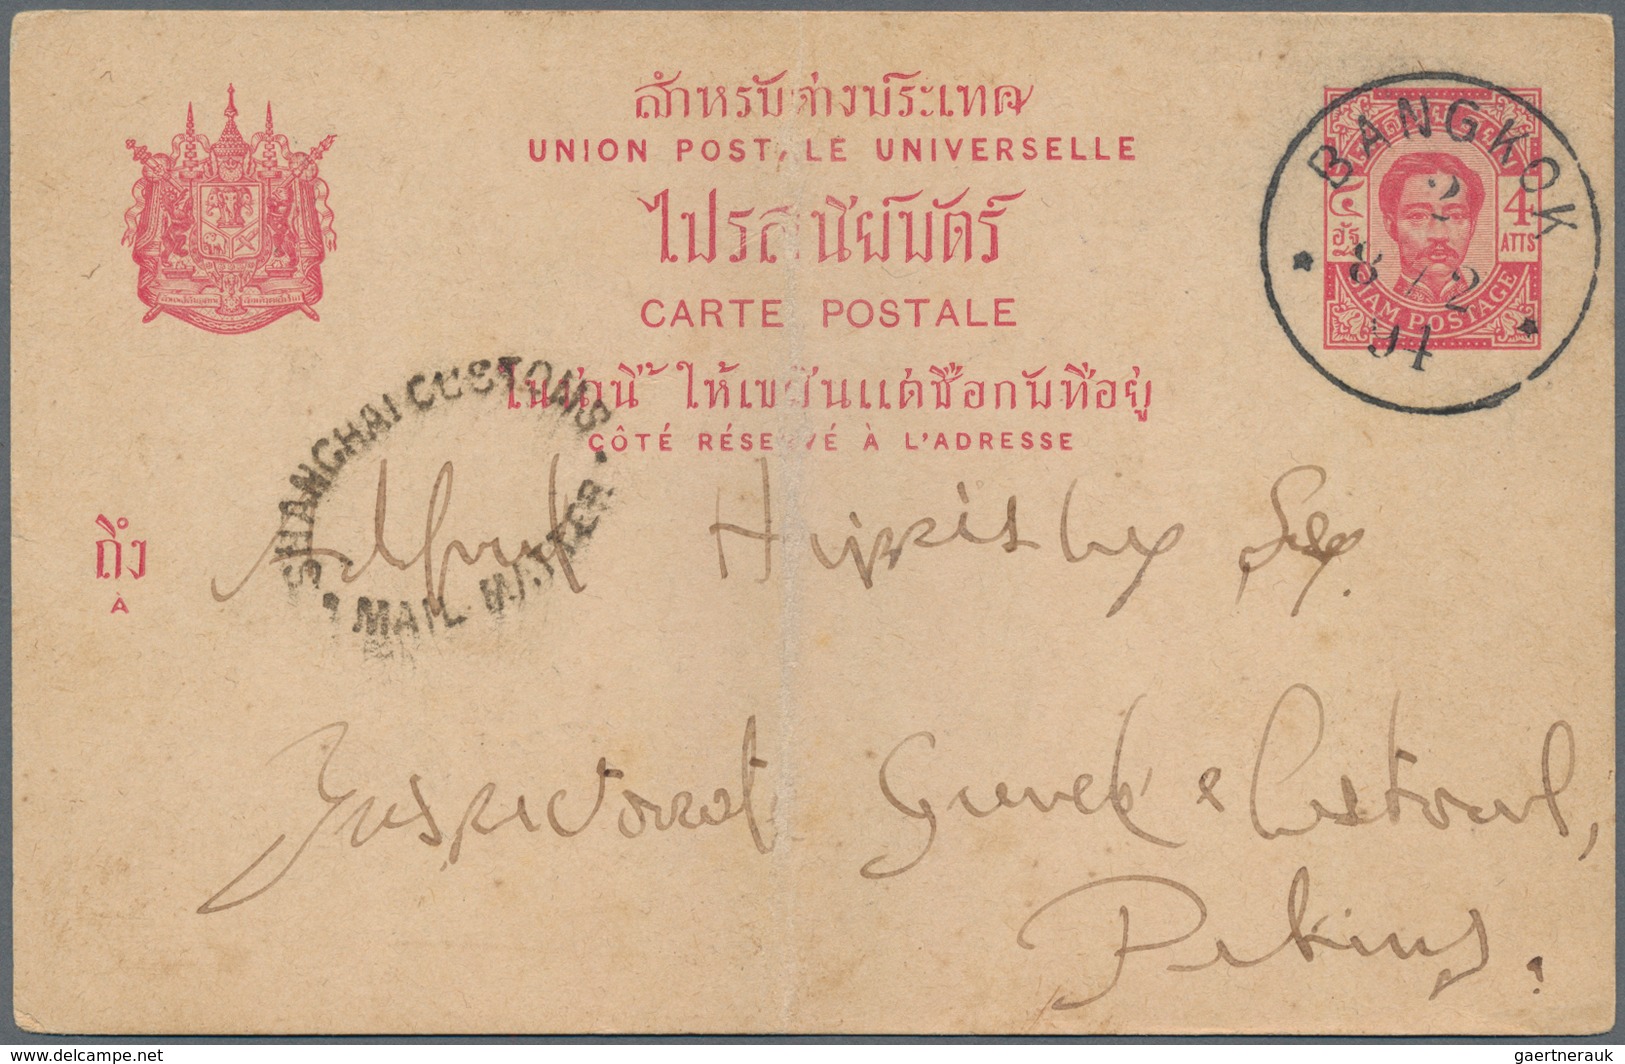 สำหรับต่างประเทศ
UNION POSTALE UNIVERSELLE
ไปรสนียบัตร์
CARTE POSTALE
ในน่านี้ ให้เขียนแต่ชื่อกับที่อยู่
CÔTÉ RÉSERVÉ À L'ADRESSE
BANGKOK
2
8 / 2
94
4
ATTS
อัฐ
SIAM POSTAGE
SHANGHAI CUSTOMS.
MAIL MATTER.
ถึง
À
Alfred Hippisley Esq.
Inspectorate General of Customs,
Peking.
delcampe.net
gaertnerauk